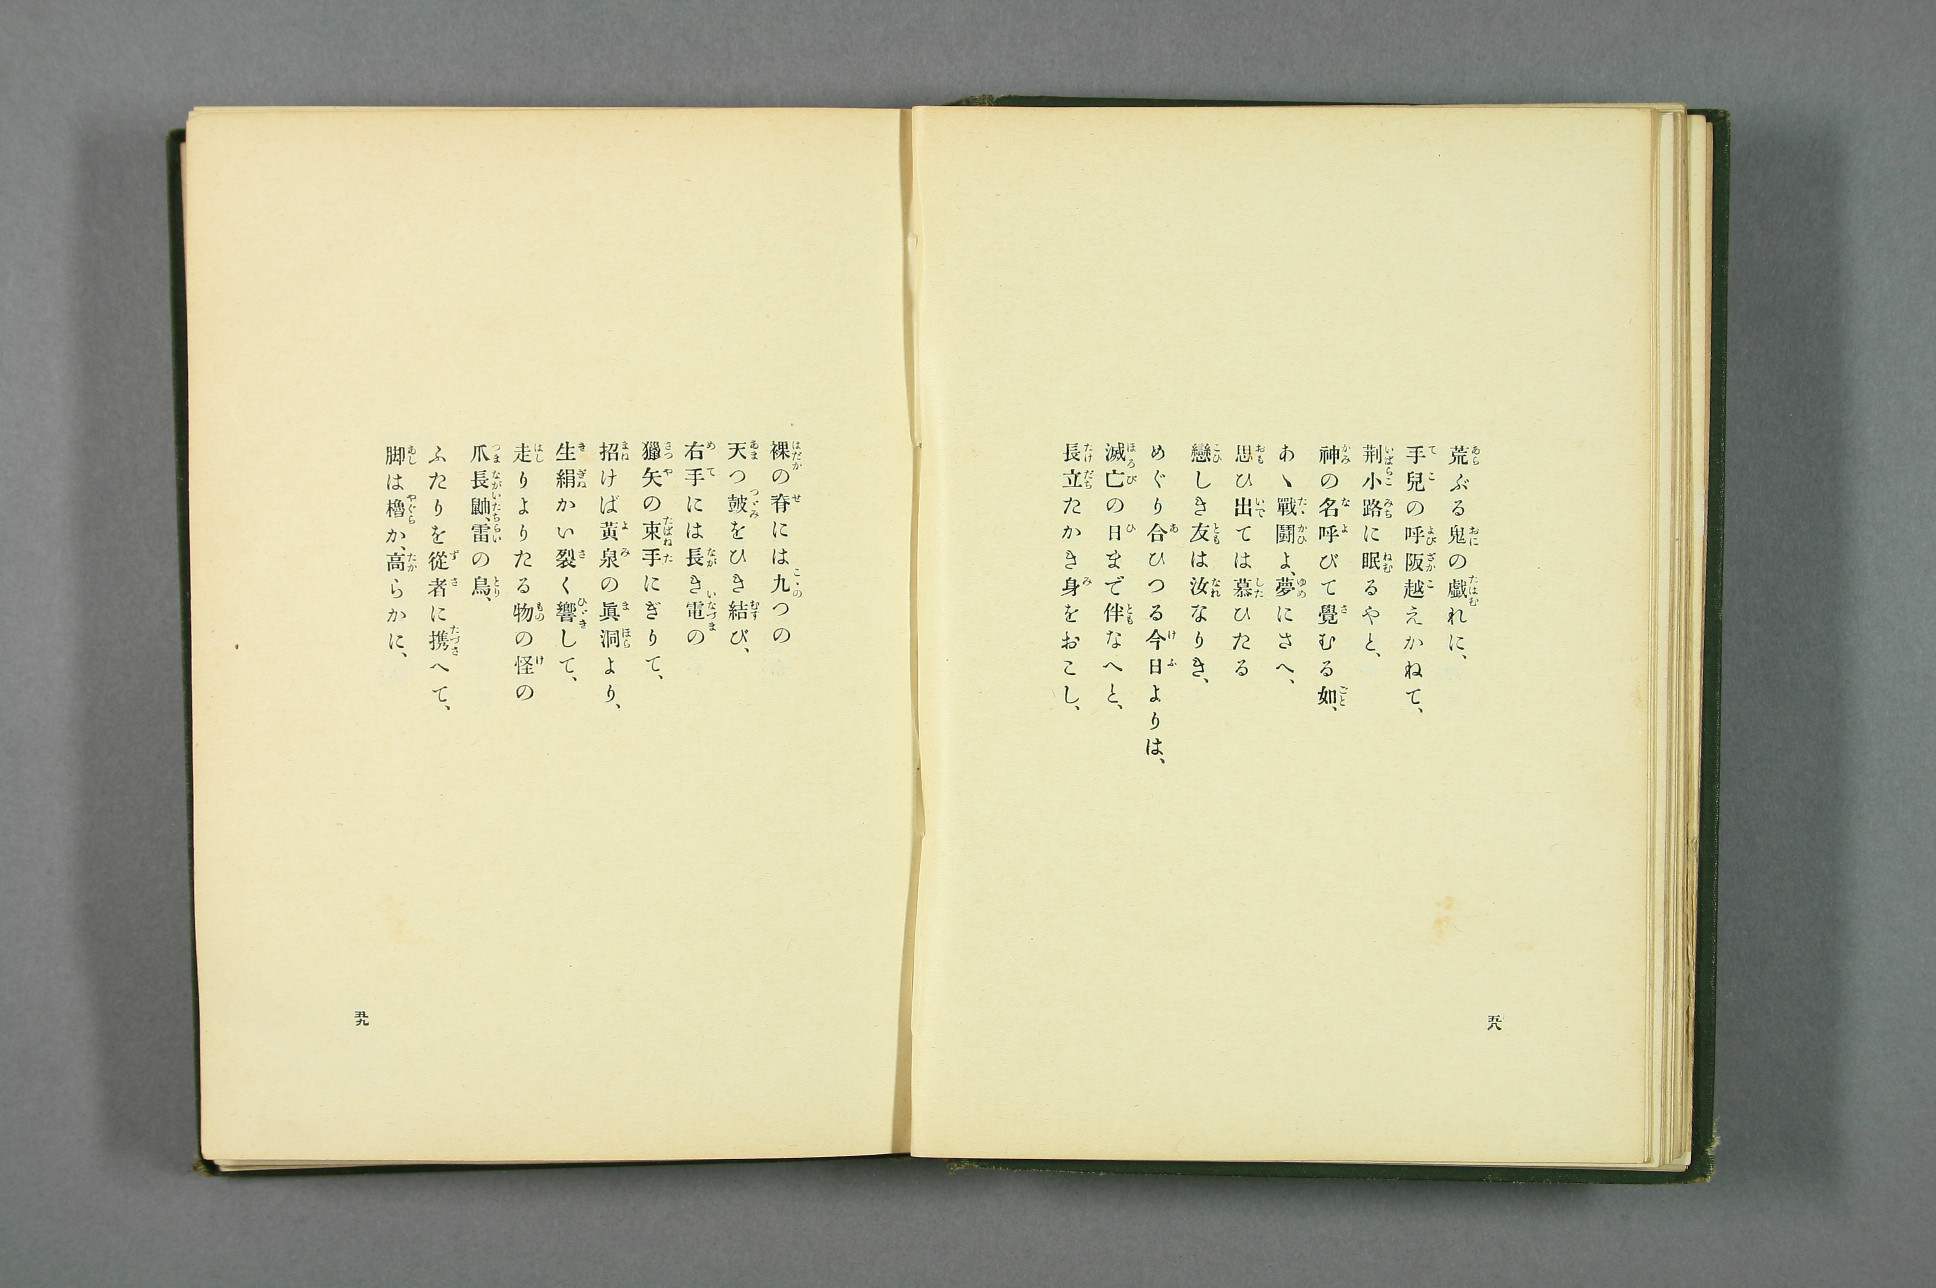 荒ぶる鬼の戯れに、
手兒の呼阪越えかねて、
荊小路に眠るやと、
神の名呼びて覺むる如、
あゝ戰鬪よ、夢にさへ、
思ひ出ては慕ひたる
戀しき友は汝なりき、
めぐり合ひつる今日よりは、
滅亡の日まで伴なへと、
長立たかき身をおこし、
五八
裸の脊には九つの
天つ皷をひき結び、
右手には長き電の
獵矢の束手にぎりて、
招けば黃泉の眞洞より、
生絹かい裂く響して、
走りよりたる物の怪の
爪長鼬、雷の鳥、
ふたりを從者に携へて、
脚は櫓か、高らかに、
五九